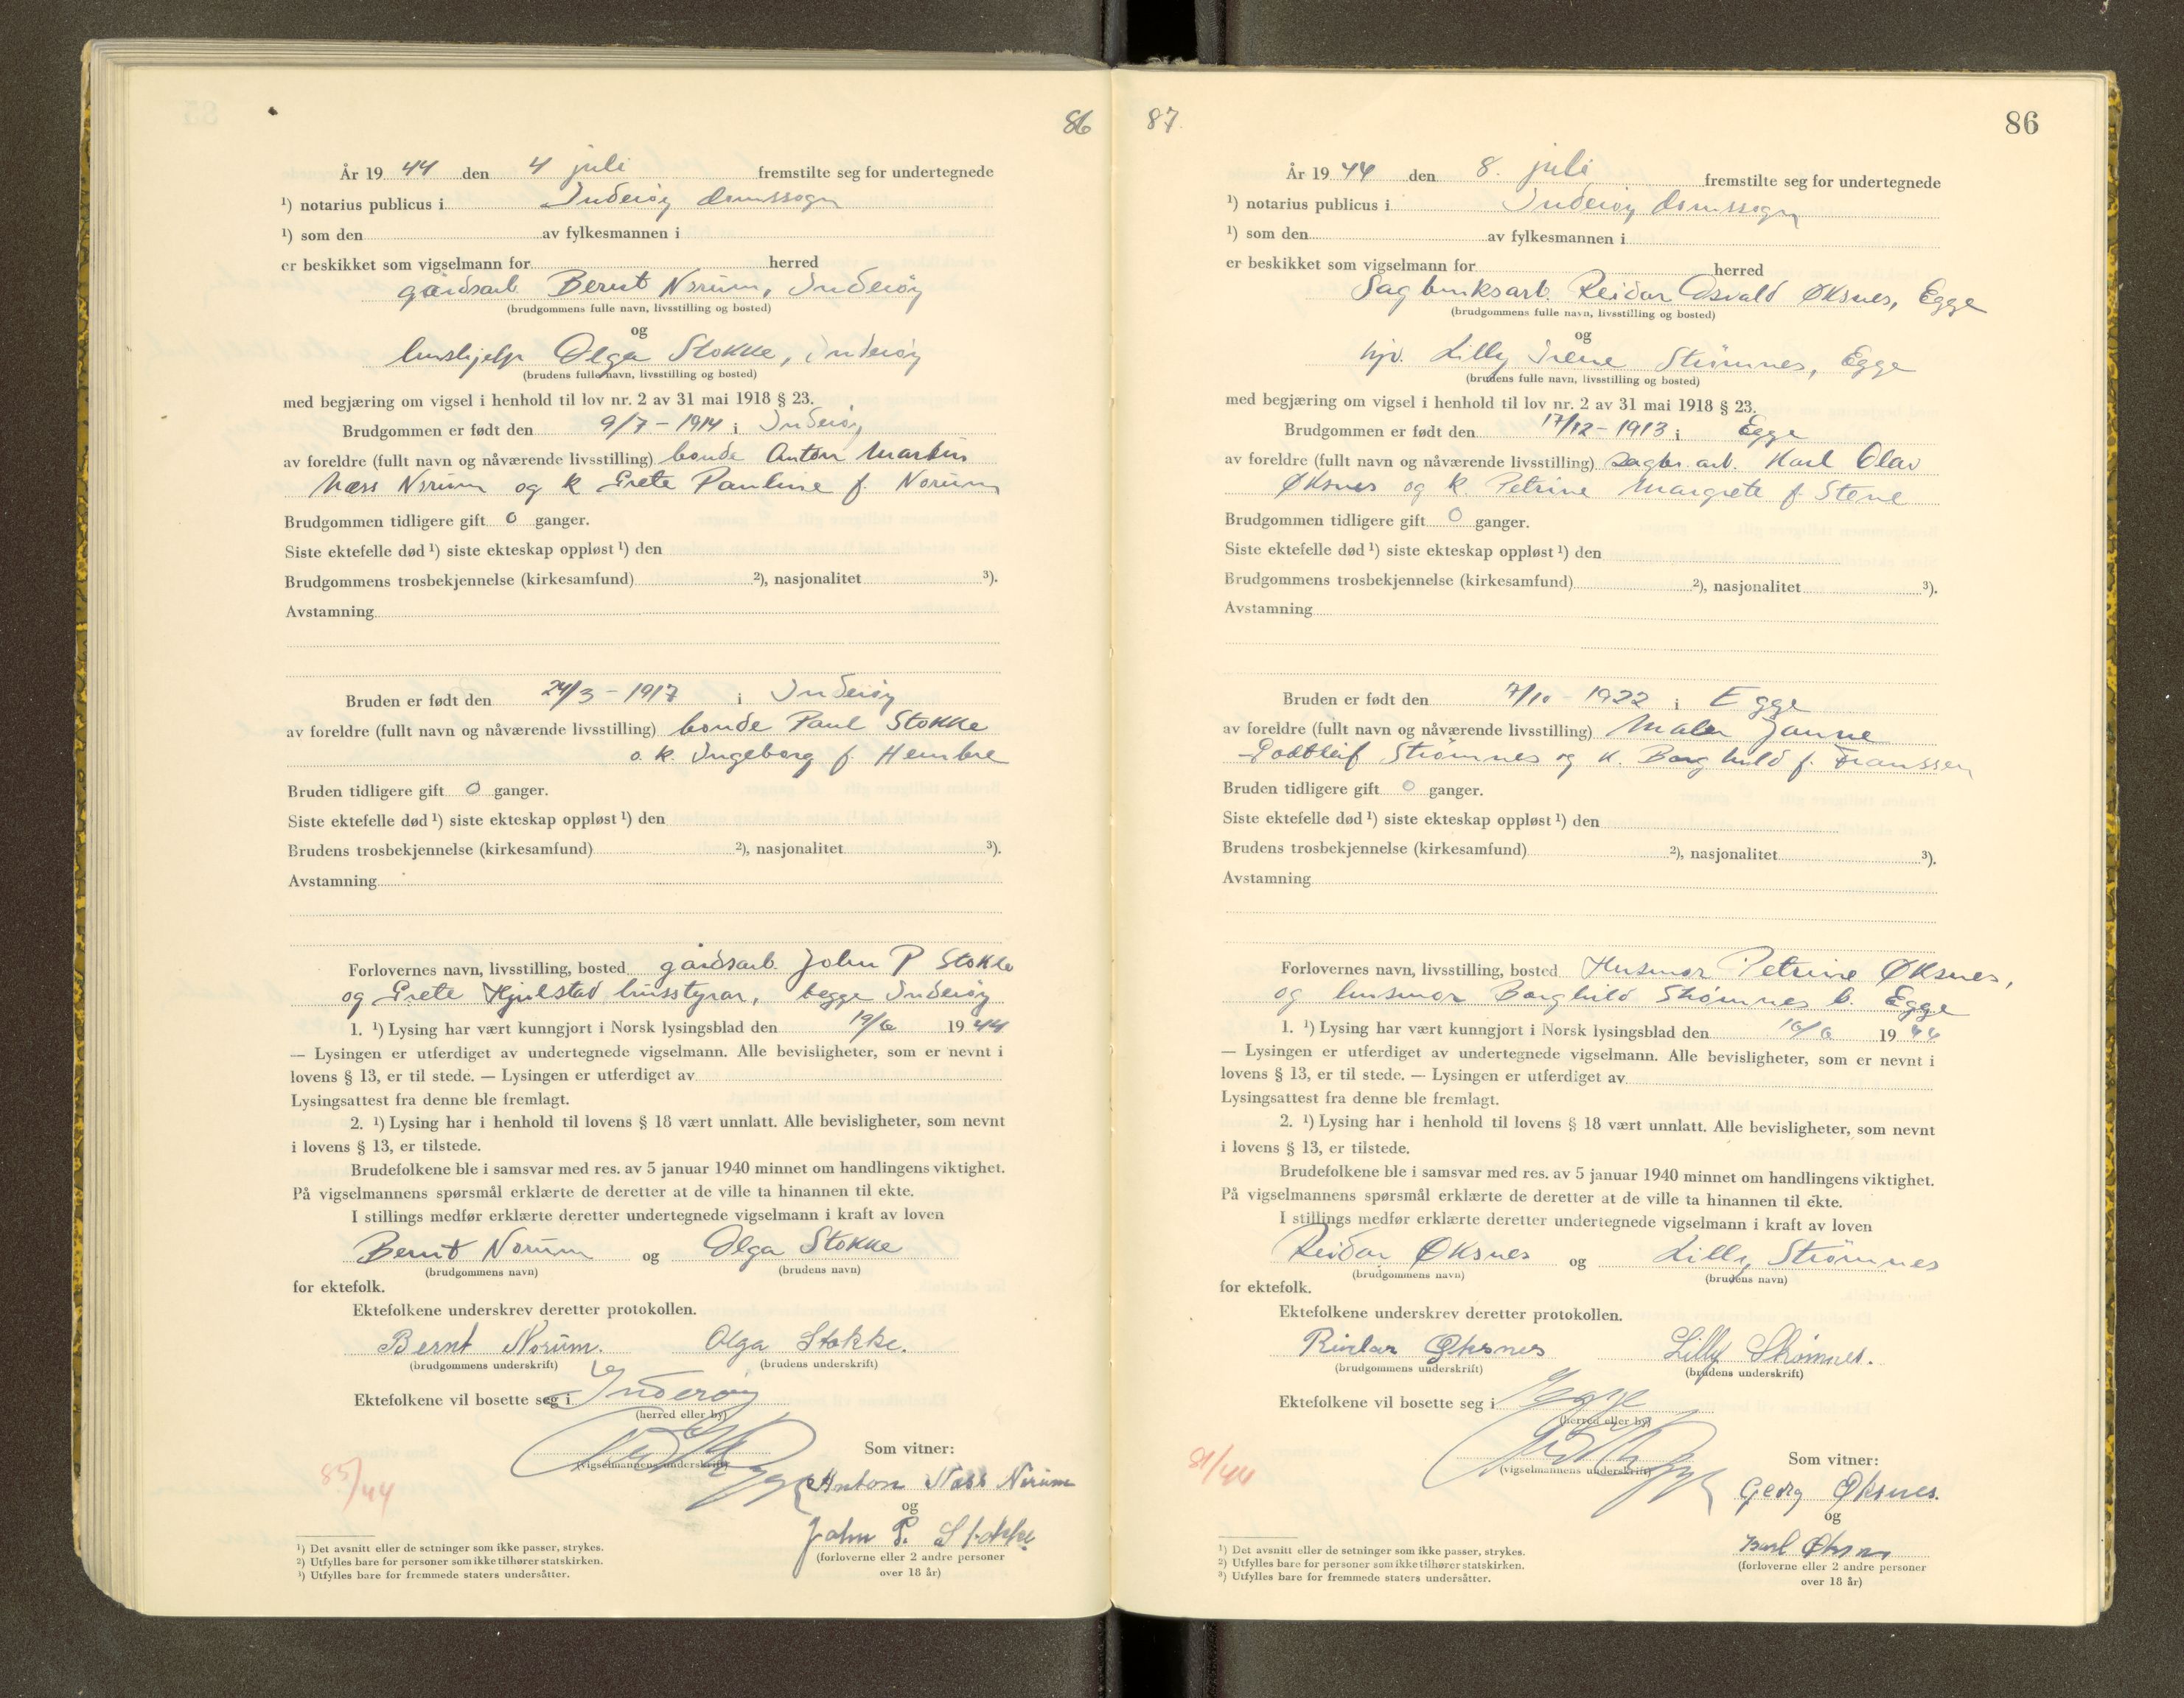 86
År 19 44 den 4 juli fremstilte seg for undertegnede
¹) notarius publicus i Inderøy domssogn
¹) som den av fylkesmannen i
er beskikket som vigselmann for herred
gårdsarb. Bernt Norum, Inderøy
(brudgommens fulle navn, livsstilling og bosted)
og
hushjelp Olga Stokke, Inderøy
(brudens fulle navn, livsstilling og bosted)
med begjæring om vigsel i henhold til lov nr. 2 av 31 mai 1918 § 23.
Brudgommen er født den 9/7 - 1914 i Inderøy
av foreldre (fullt navn og nåværende livsstilling) bonde Anton Martin
Næss Norum og k Grete Pauline f. Norum
Brudgommen tidligere gift 0 ganger.
Siste ektefelle død ¹) siste ekteskap oppløst ¹) den
Brudgommens trosbekjennelse (kirkesamfund) ²), nasjonalitet ³).
Avstamning
Bruden er født den 24/3 - 1917 i Inderøy
av foreldre (fullt navn og nåværende livsstilling) bonde Paul Stokke
o. k. Ingeborg f. Hembre
Bruden tidligere gift 0 ganger.
Siste ektefelle død ¹) siste ekteskap oppløst ¹) den
Brudens trosbekjennelse (kirkesamfund) ²), nasjonalitet ³).
Avstamning
Forlovernes navn, livsstilling, bosted gårdsarb. John P Stokke
og Grete Hjulstad husstyrar, begge Inderøy
1. ¹) Lysing har vært kunngjort i Norsk lysingsblad den 19/6 19 44
— Lysingen er utferdiget av undertegnede vigselmann. Alle bevisligheter, som er nevnt i
lovens § 13, er til stede. — Lysingen er utferdiget av
Lysingsattest fra denne ble fremlagt.
2. ¹) Lysing har i henhold til lovens § 18 vært unnlatt. Alle bevisligheter, som nevnt
i lovens § 13, er tilstede.
Brudefolkene ble i samsvar med res. av 5 januar 1940 minnet om handlingens viktighet.
På vigselmannens spørsmål erklærte de deretter at de ville ta hinannen til ekte.
I stillings medfør erklærte deretter undertegnede vigselmann i kraft av loven
Bernt Norum og Olga Stokke
(brudgommens navn) (brudens navn)
for ektefolk.
Ektefolkene underskrev deretter protokollen.
Bernt Norum. Olga Stokke.
(brudgommens underskrift) (brudens underskrift)
Ektefolkene vil bosette seg i Inderøy
(herred eller by)
Som vitner:
(vigselmannens underskrift)
Anton Næss Norum
85/44
og
John P. Stokke
(forloverne eller 2 andre personer
over 18 år)
¹) Det avsnitt eller de setninger som ikke passer, strykes.
²) Utfylles bare for personer som ikke tilhører statskirken.
³) Utfylles bare for fremmede staters undersåtter.
87. 86
År 19 44 den 8. juli fremstilte seg for undertegnede
¹) notarius publicus i Inderøy domssogn
¹) som den av fylkesmannen i
er beskikket som vigselmann for herred
Sagbruksarb. Reidar Osvald Øksnes, Egge
(brudgommens fulle navn, livsstilling og bosted)
og
hjv. Lilly Irene Strømnes, Egge
(brudens fulle navn, livsstilling og bosted)
med begjæring om vigsel i henhold til lov nr. 2 av 31 mai 1918 § 23.
Brudgommen er født den 17/12 - 1913 i Egge
av foreldre (fullt navn og nåværende livsstilling) sagbr. arb. Karl Olav
Øksnes og k. Petrine Margrete f. Stene
Brudgommen tidligere gift 0 ganger.
Siste ektefelle død ¹) siste ekteskap oppløst ¹) den
Brudgommens trosbekjennelse (kirkesamfund) ²), nasjonalitet ³).
Avstamning
Bruden er født den 7/10 - 1922 i Egge
av foreldre (fullt navn og nåværende livsstilling) Maler Janne
Strømnes og k. Borghild f. Franssen
Bruden tidligere gift 0 ganger.
Siste ektefelle død ¹) siste ekteskap oppløst ¹) den
Brudens trosbekjennelse (kirkesamfund) ²), nasjonalitet ³).
Avstamning
Forlovernes navn, livsstilling, bosted Husmor Petrine Øksnes,
og husmor Borghild Strømnes b. Egge
1. ¹) Lysing har vært kunngjort i Norsk lysingsblad den 16/6 19 44
— Lysingen er utferdiget av undertegnede vigselmann. Alle bevisligheter, som er nevnt i
lovens § 13, er til stede. — Lysingen er utferdiget av
Lysingsattest fra denne ble fremlagt.
2. ¹) Lysing har i henhold til lovens § 18 vært unnlatt. Alle bevisligheter, som nevnt
i lovens § 13, er tilstede.
Brudefolkene ble i samsvar med res. av 5 januar 1940 minnet om handlingens viktighet.
På vigselmannens spørsmål erklærte de deretter at de ville ta hinannen til ekte.
I stillings medfør erklærte deretter undertegnede vigselmann i kraft av loven
Reidar Øksnes og Lilly Strømnes
(brudgommens navn) (brudens navn)
for ektefolk.
Ektefolkene underskrev deretter protokollen.
Reidar Øksnes Lilly Strømnes.
(brudgommens underskrift) (brudens underskrift)
Ektefolkene vil bosette seg i Egge
(herred eller by)
Som vitner:
(vigselmannens underskrift)
Georg Øksnes.
91/44
og
Karl Øksnes
(forloverne eller 2 andre personer
over 18 år)
¹) Det avsnitt eller de setninger som ikke passer, strykes.
²) Utfylles bare for personer som ikke tilhører statskirken.
³) Utfylles bare for fremmede staters undersåtter.